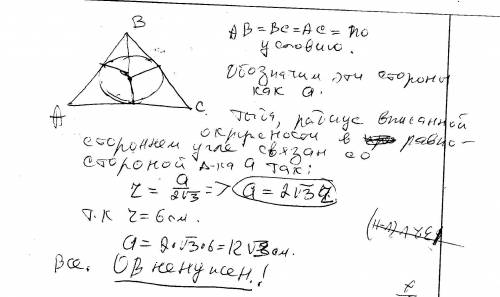 B
A
C
AB = BC = AC = по
условию.
Обозначим эти стороны
как a.
Тогда, радиус вписанной
окружности в равно-
стороннем угле связан со
стороной Δ-ка a так:
r = a/2√3 => a = 2√3 r.
т.к r = 6 см.
a = 2·√3·6 = 12√3 см.
Все. OB не нужен!